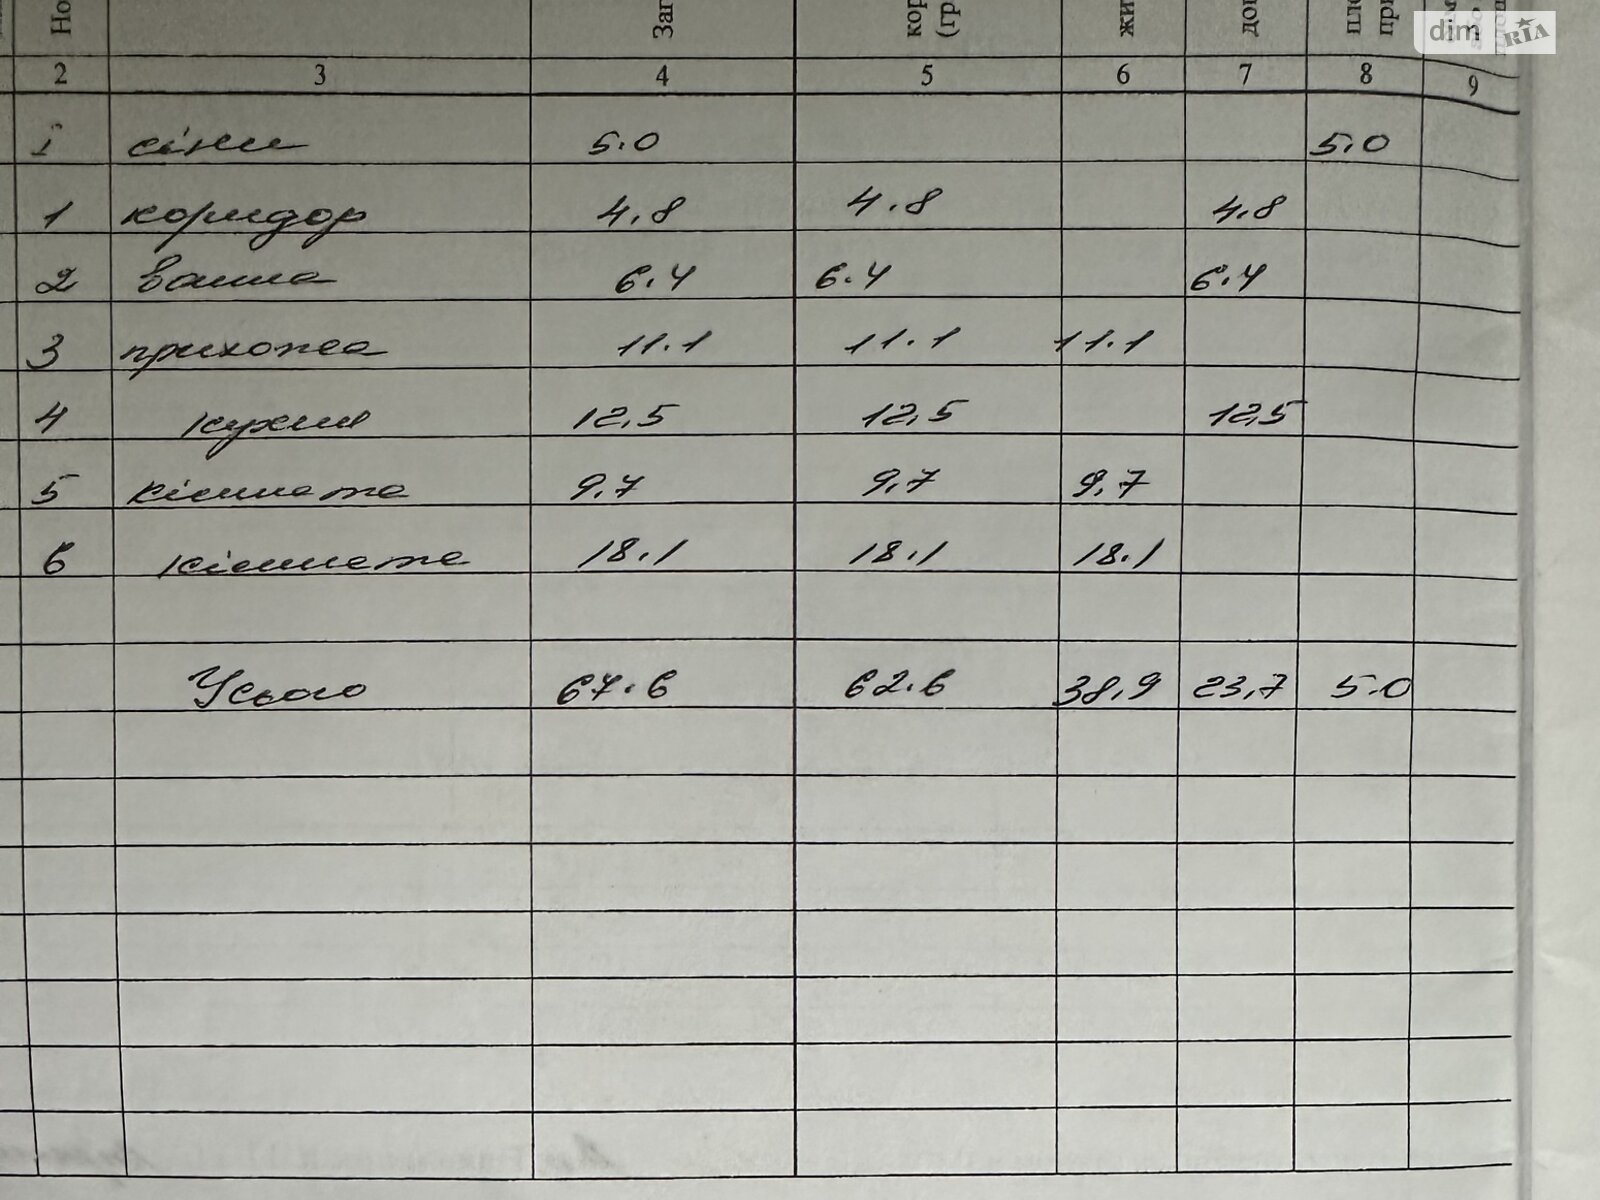 Но Заг кор (гр жи доп пло при
dim RIA
2 3 4 5 6 7 8 9
I сіни 5.0 5.0
1 коридор 4.8 4.8 4.8
2 ванна 6.4 6.4 6.4
3 прихожа 11.1 11.1 11.1
4 кухня 12,5 12,5 12,5
5 кімната 9.7 9.7 9.7
6 кімната 18.1 18.1 18.1
Усього 67.6 62.6 38,9 23,7 5.0